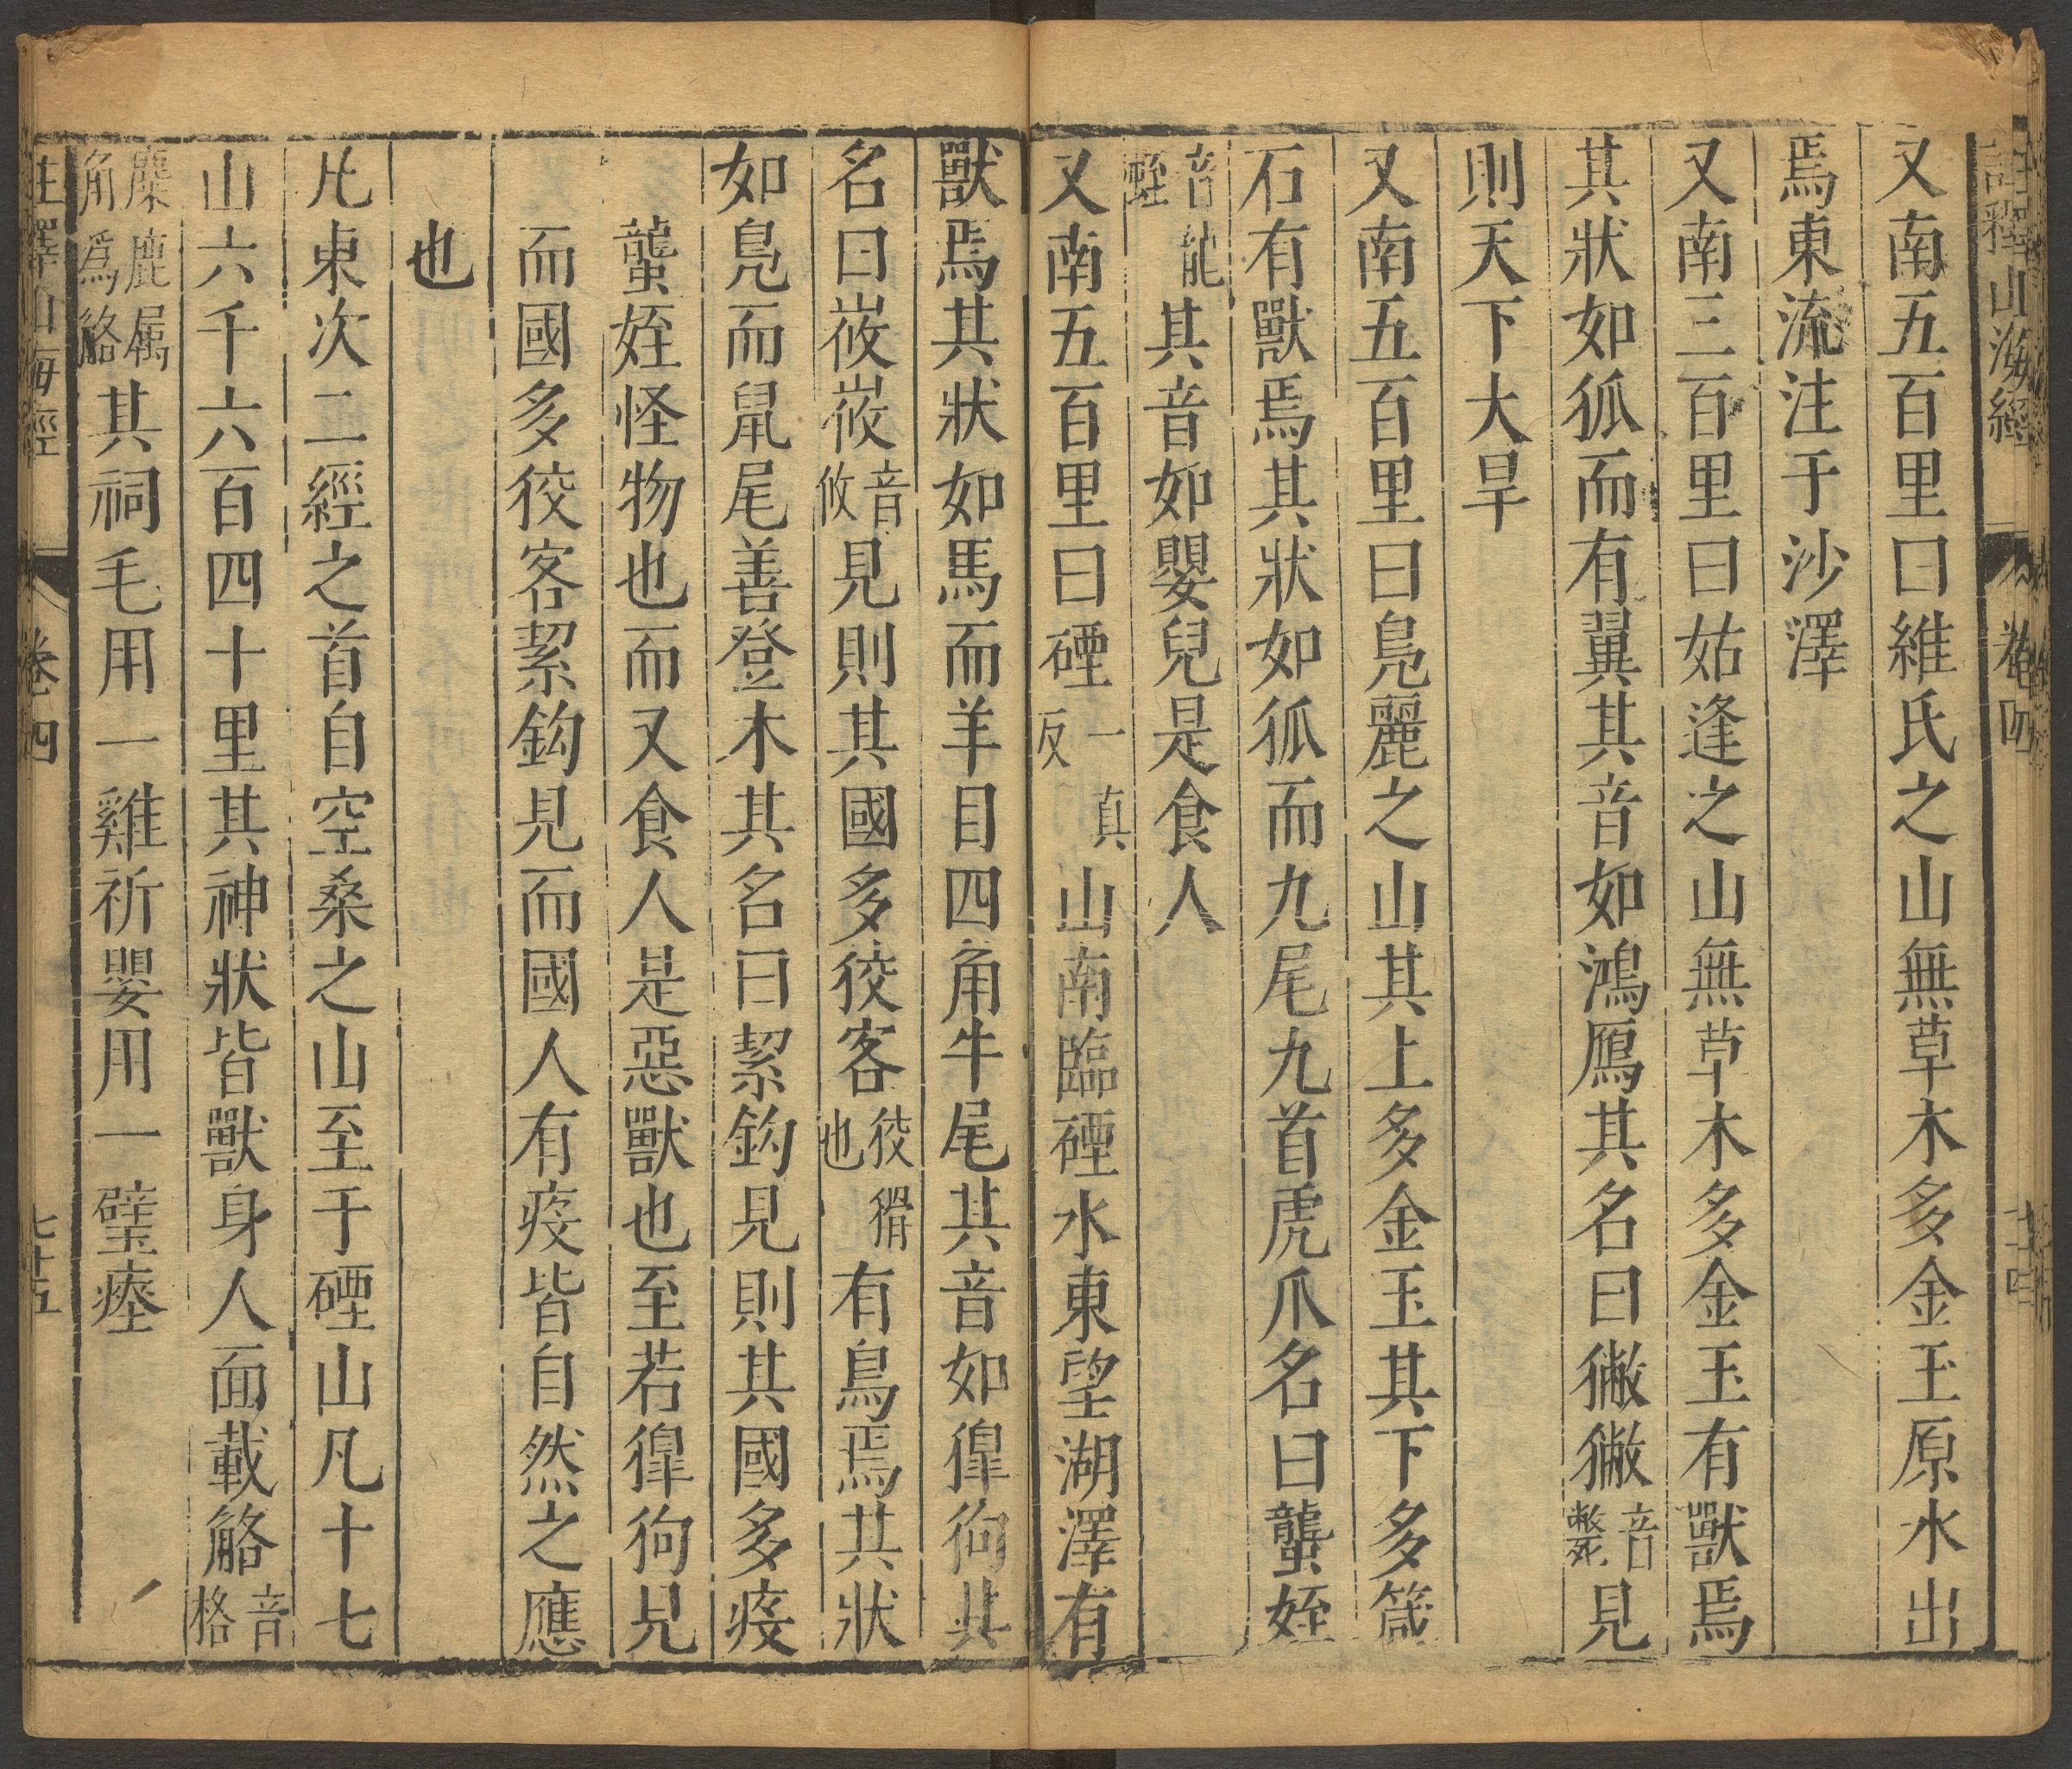 註釋山海經 卷四 七十四
又南五百里曰維氏之山無草木多金玉原水出
焉東流注于沙澤
又南三百里曰姑逢之山無草木多金玉有獸焉
其狀如狐而有翼其音如鴻鴈其名曰獙獙音斃見
則天下大旱
又南五百里曰鳧麗之山其上多金玉其下多箴
石有獸焉其狀如狐而九尾九首虎爪名曰蠪姪
音龍蛭其音如嬰兒是食人
又南五百里曰䃌一真反山南臨䃌水東望湖澤有
獸焉其狀如馬而羊目四角牛尾其音如獆狗其
名曰峳峳音攸見則其國多狡客狡猾也有鳥焉其狀
如鳧而鼠尾善登木其名曰絜鉤見則其國多疫
蠪姪怪物也而又食人是惡獸也至若獆狗見
而國多狡客絜鉤見而國人有疫皆自然之應
也
凡東次二經之首自空桑之山至于䃌山凡十七
山六千六百四十里其神狀皆獸身人面載觡音格
麋鹿属角為觡其祠毛用一雞祈嬰用一璧瘞
註釋山海經 卷四 七十五